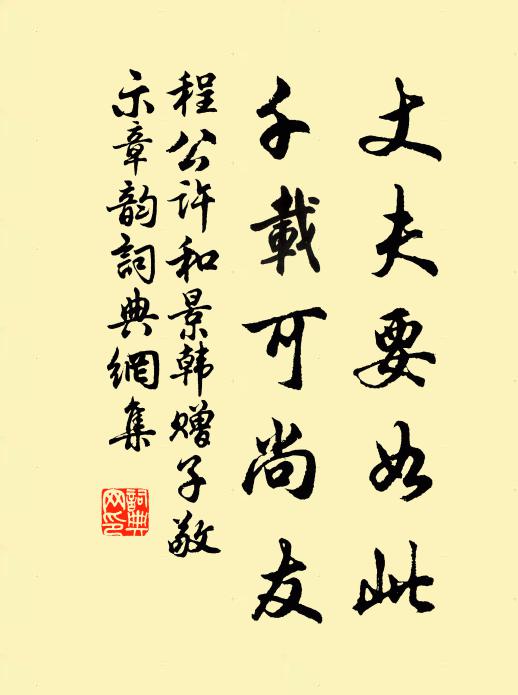 丈夫要如此
千載可尚友
程公许和景韩赠子敬
示章韵詞典網集
詞典
网印